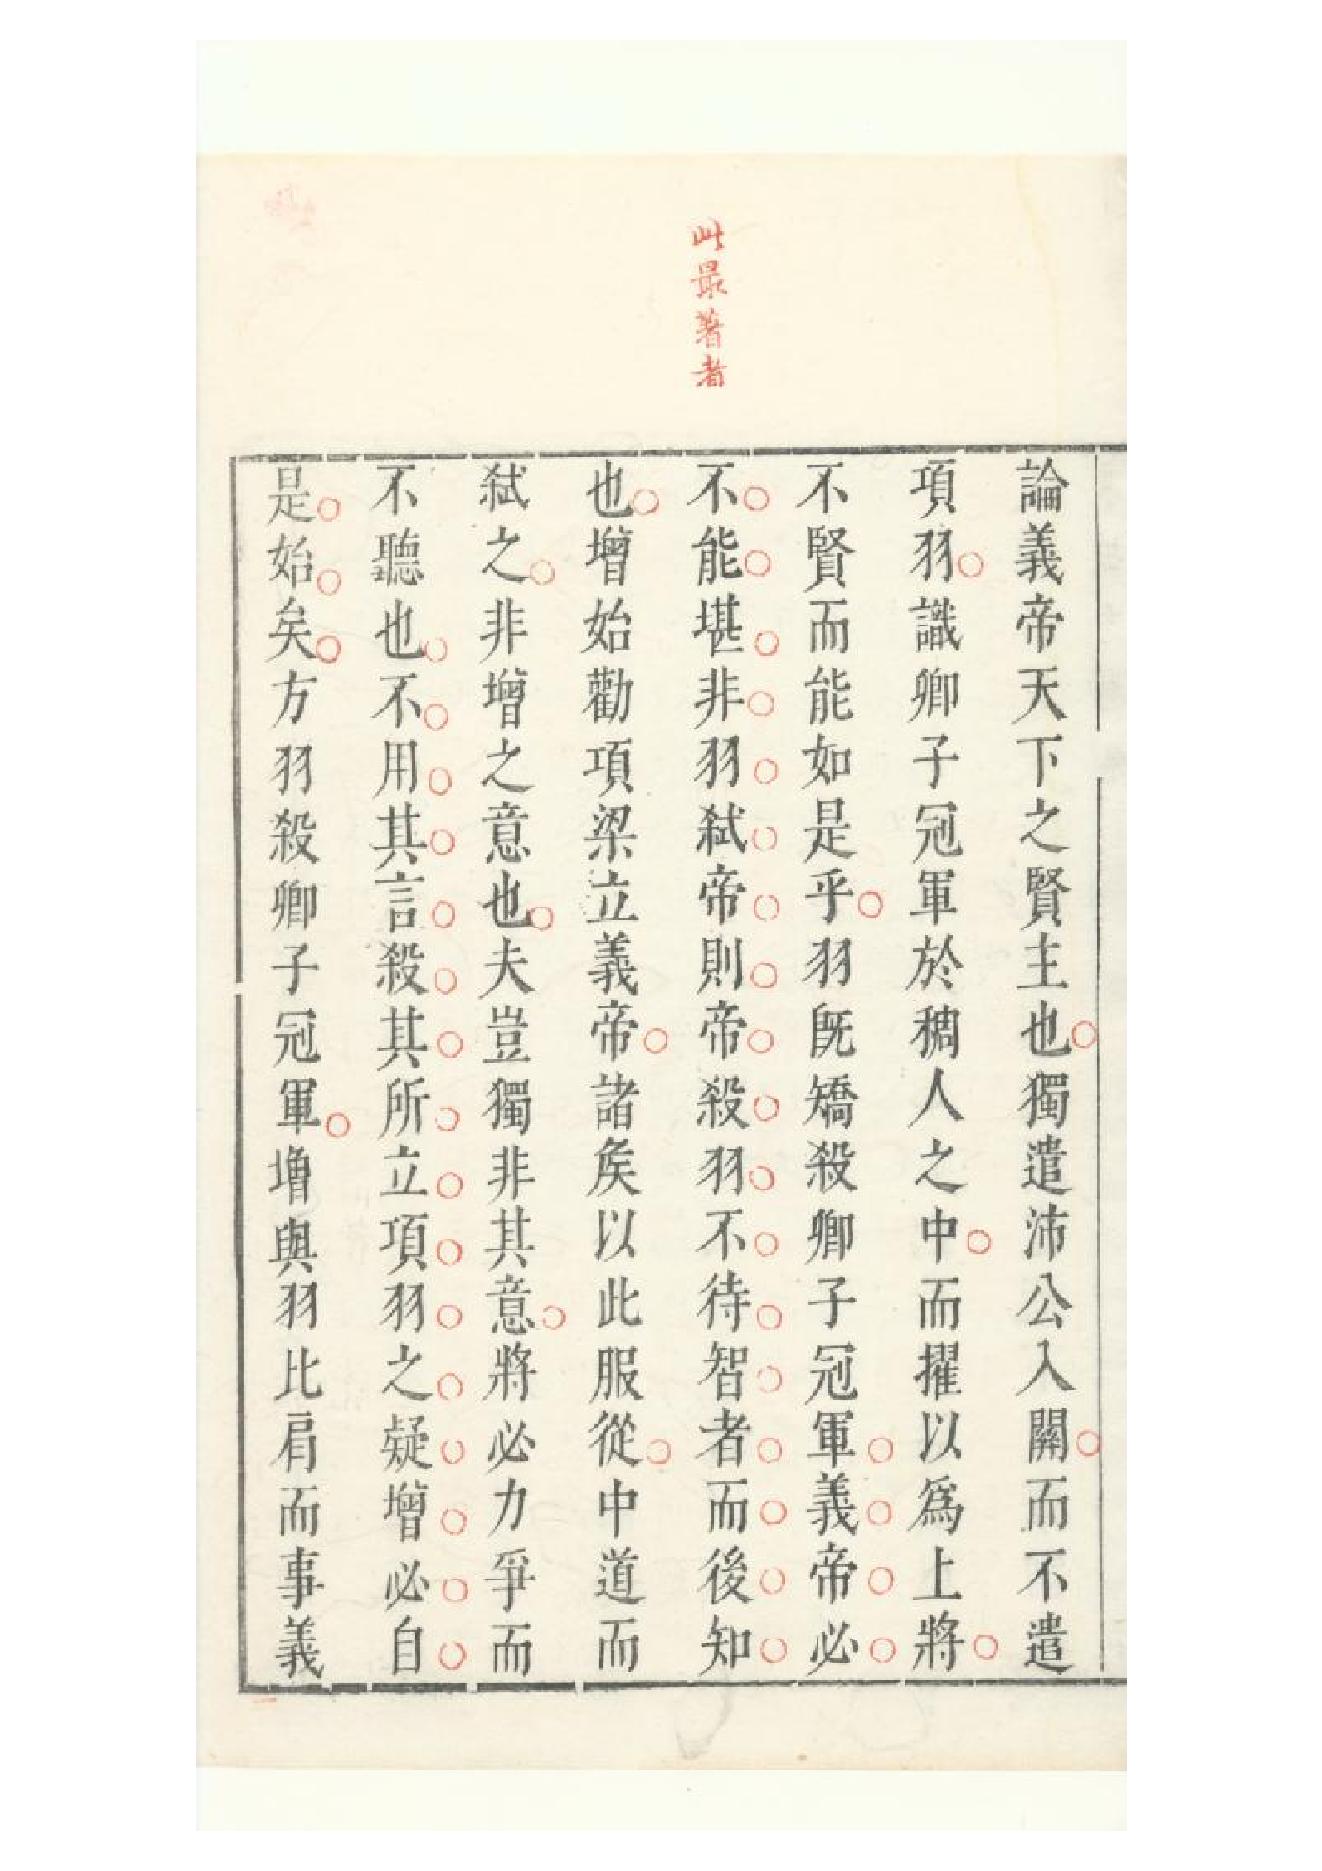 此最著者
論義帝天下之賢主也獨遣沛公入關而不遣
項羽識卿子冠軍於稠人之中而擢以爲上將
不賢而能如是乎羽旣矯殺卿子冠軍義帝必
不能堪非羽弑帝則帝殺羽不待智者而後知
也增始勸項梁立義帝諸矦以此服從中道而
弑之非增之意也夫豈獨非其意將必力爭而
不聽也不用其言殺其所立項羽之疑增必自
是始矣方羽殺卿子冠軍增與羽比肩而事義